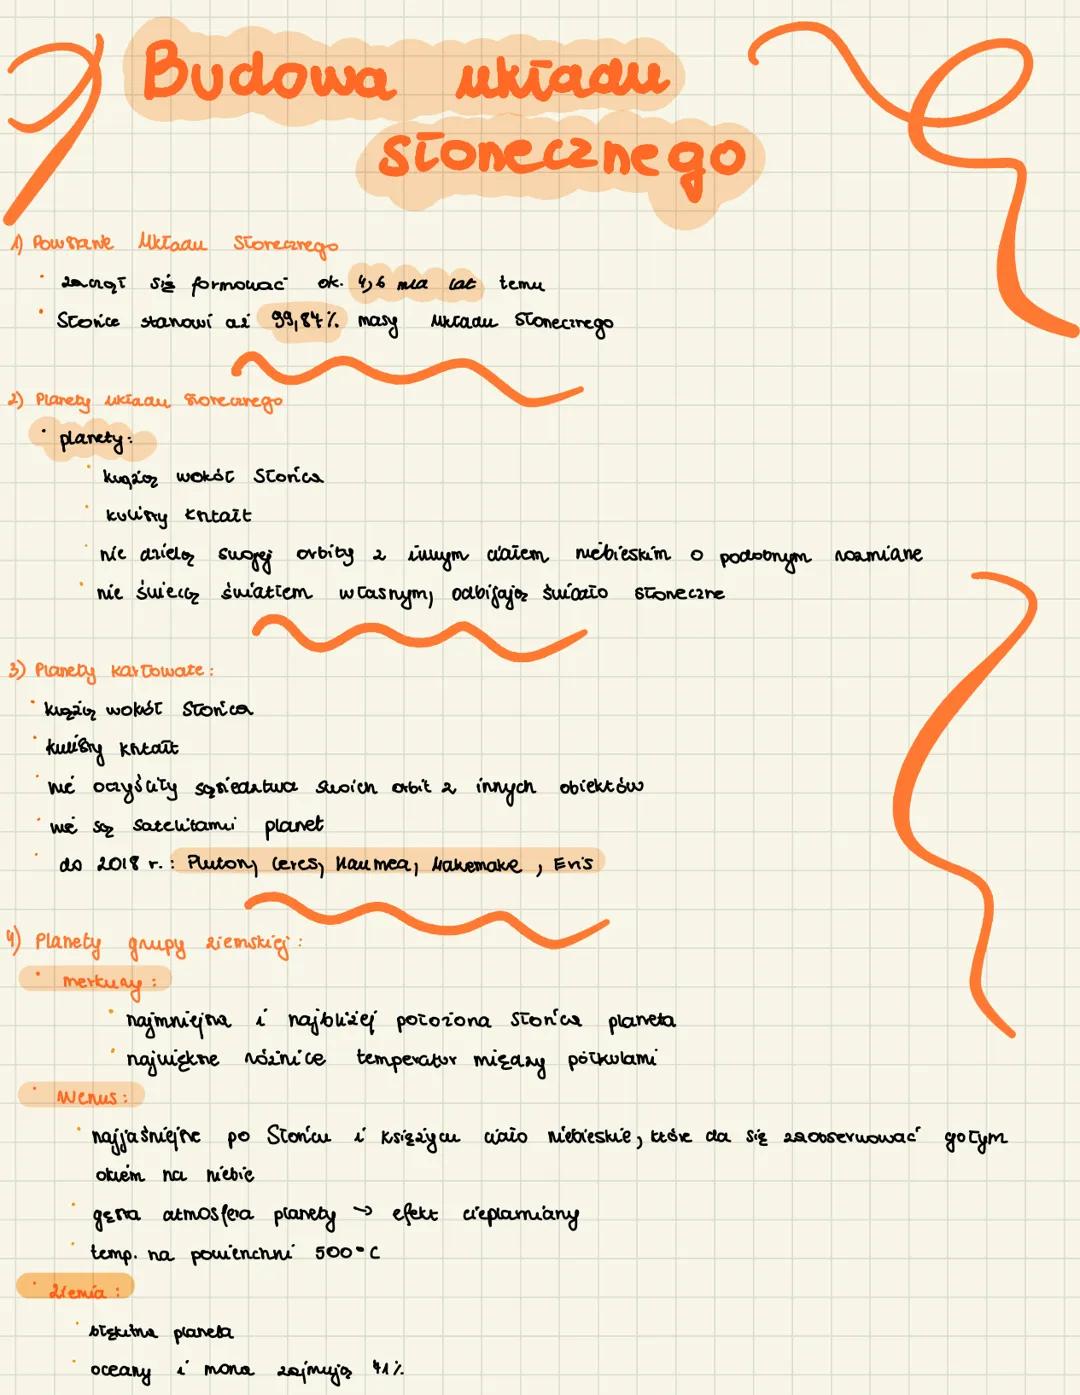 Budowa układu
słonecznego
1) Powstanie Układu Słonecznego
· zaczął się formować ok. 4,6 mld lat temu
· Słońce stanowi aż 99,84% masy Układu Słonecznego
2) Planety układu słonecznego
· planety:
· krążią wokół Słońca
· kulisty kształt
· nie dzielą swojej orbity z innym ciałem niebieskim o podobnym rozmiarze
· nie świecą światłem własnym, odbijają światło słoneczne
3) Planety karłowate:
· krążią wokół Słońca
· kulisty kształt
· nie oczyściły sąsiedztwa swoich orbit z innych obiektów
· nie są satelitami planet
· do 2018 r.: Pluton, Ceres, Haumea, Makemake, Eris
4) Planety grupy ziemskiej:
· merkury:
· najmniejsza i najbliżej położona Słońca planeta
· największe różnice temperatur między półkulami
· Wenus:
· najjaśniejsze po Słońcu i Księżycu ciało niebieskie, które da się zaobserwować gołym
okiem na niebie
· gęsta atmosfera planety → efekt cieplarniany
· temp. na powierzchni 500°C
· Ziemia:
· błękitna planeta
· oceany i morza zajmują 71%